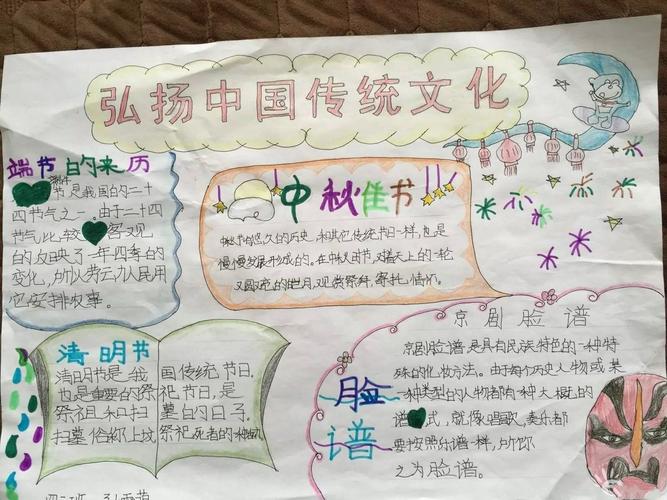 弘扬中国传统文化
端节的来历
节是我国的二十
四节气之一。由于二十四
节气比较客观
的反映了一年四季的
变化,所以劳动人民用
它安排农事。
中秋佳节
中秋节有悠久的历史,和其它传统节日一样,也是
慢慢发展形成的。在中秋时节,对着天上的一轮
又圆又亮的皓月,观赏祭拜,寄托情怀。
清明节
清明节是我国传统节日,
也是重要的祭祀节日,是
祭祖和扫墓的日子。
扫墓俗称上坟,祭祀死者的一种
京剧脸谱
脸谱
京剧脸谱是具有民族特色的一种特
殊的化妆方法。由于每个历史人物或某
一种类型的人物都有一种大概的
谱式,就像唱歌,奏乐都
要按照乐谱一样,所以
之为脸谱。